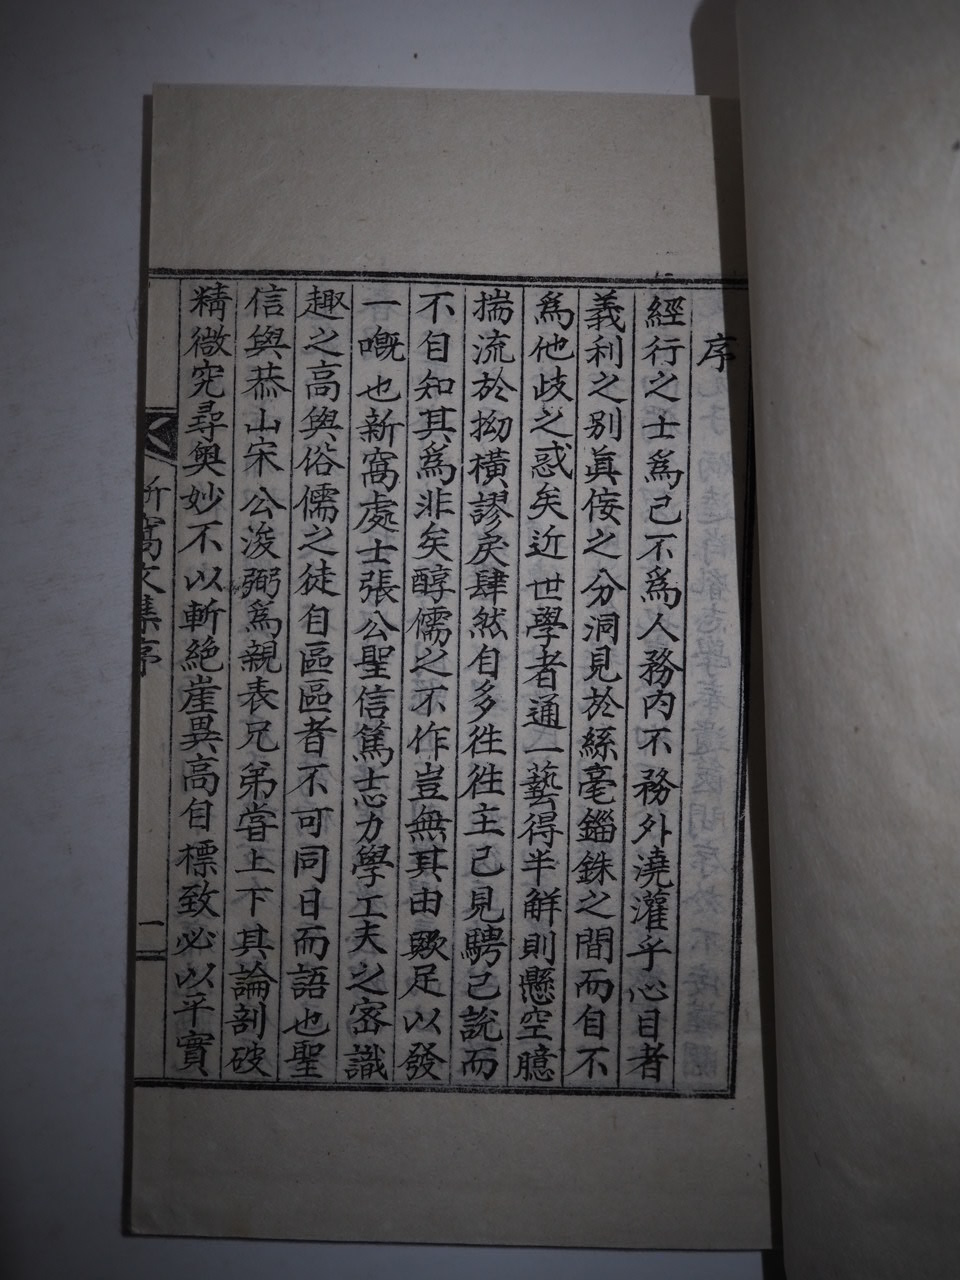 序
經行之士爲己不爲人務內不務外澆灌乎心目者
義利之別眞侫之分洞見於絲毫錙銖之間而自不
爲他歧之惑矣近世學者通一藝得半解則懸空臆
揣流於拗橫謬戾肆然自多徃徃主己見騁己說而
不自知其爲非矣醇儒之不作豈無其由歟足以發
一嘅也新窩處士張公聖信篤志力學工夫之密識
趣之高與俗儒之徒自區區者不可同日而語也聖
信與恭山宋公浚弼爲親表兄弟嘗上下其論剖破
精微究尋奧妙不以斬絶崖異高自標致必以平實
新窩文集序
一